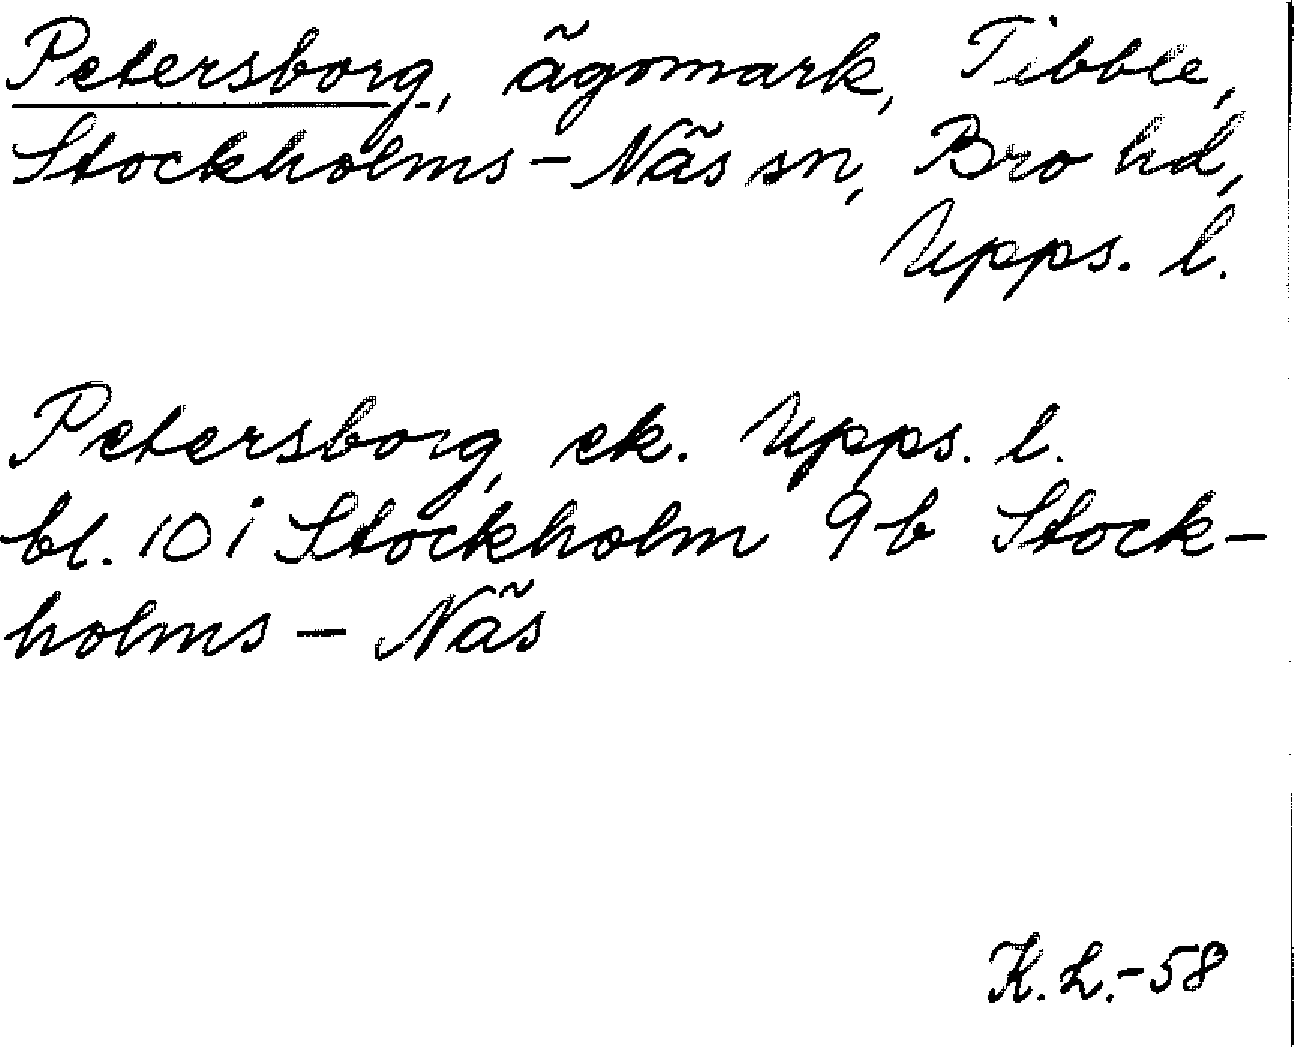 Petersborg, ägomark, Tibble,
Stockholms-Näs sn, Bro hd,
Upps. l.
Petersborg, ek. Upps. l.
bl. 10 i Stockholm 9 b Stock-
holms - Näs
K. L. -58